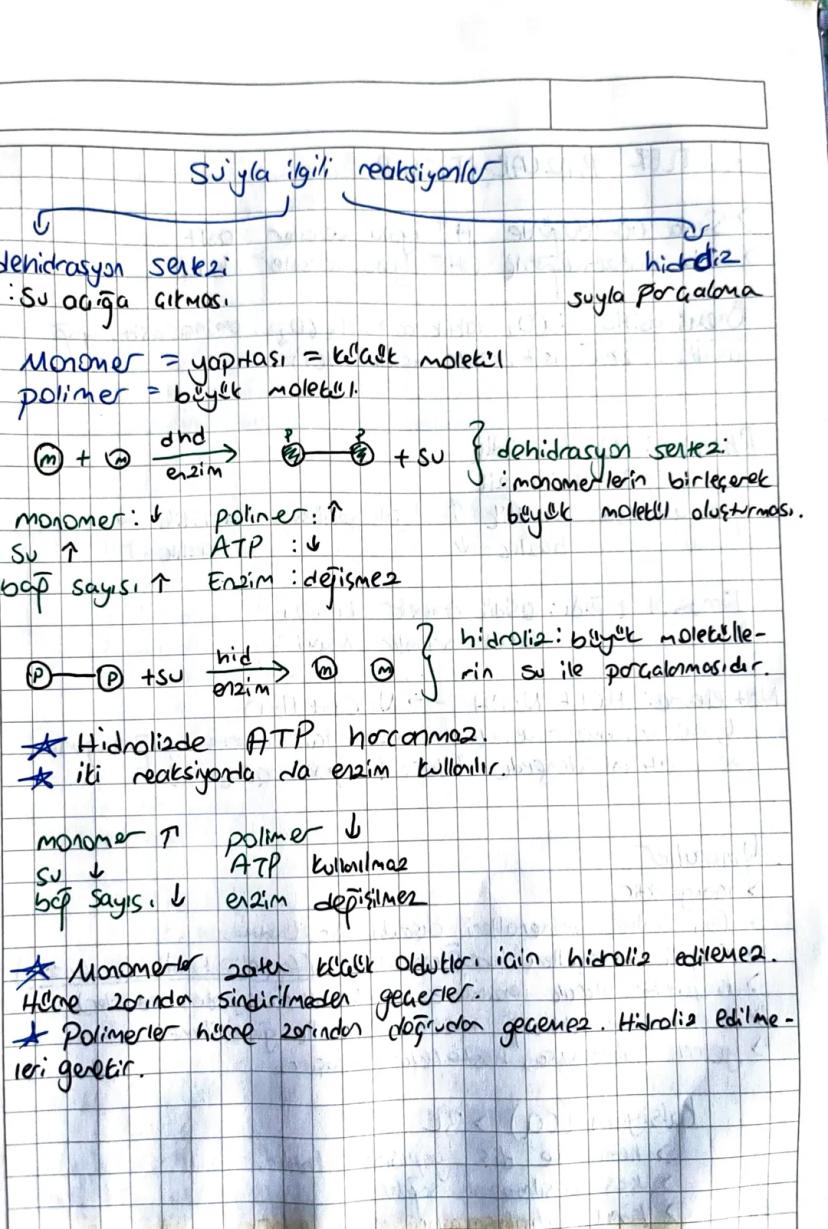 Su'yla ilgili reaksiyonlar
dehidrasyon sentezi
: Su açığa çıkması
hidroliz
suyla parçalama
Monomer = yapıtaşı = küçük molekül
polimer = büyük molekül.
m + m dhd enzim P P + su } dehidrasyon sentezi:
: monomerlerin birleşerek
büyük molekül oluşturması.
monomer: ↓ polimer: ↑
su ↑ ATP : ↓
bağ sayısı ↑ Enzim : değişmez
P P + su hid enzim m m } hidroliz: büyük molekülle-
rin su ile parçalanmasıdır.
★ Hidrolizde ATP harcanmaz.
★ iki reaksiyonda da enzim kullanılır.
monomer ↑ polimer ↓
su ↓ ATP kullanılmaz
bağ sayısı ↓ enzim değişilmez
★ Monomerler zaten küçük oldukları için hidroliz edilemez.
Hücre zarında sindirilmeden geçerler.
★ Polimerler hücre zarından doğrudan geçemez. Hidroliz edilme-
leri gerekir.